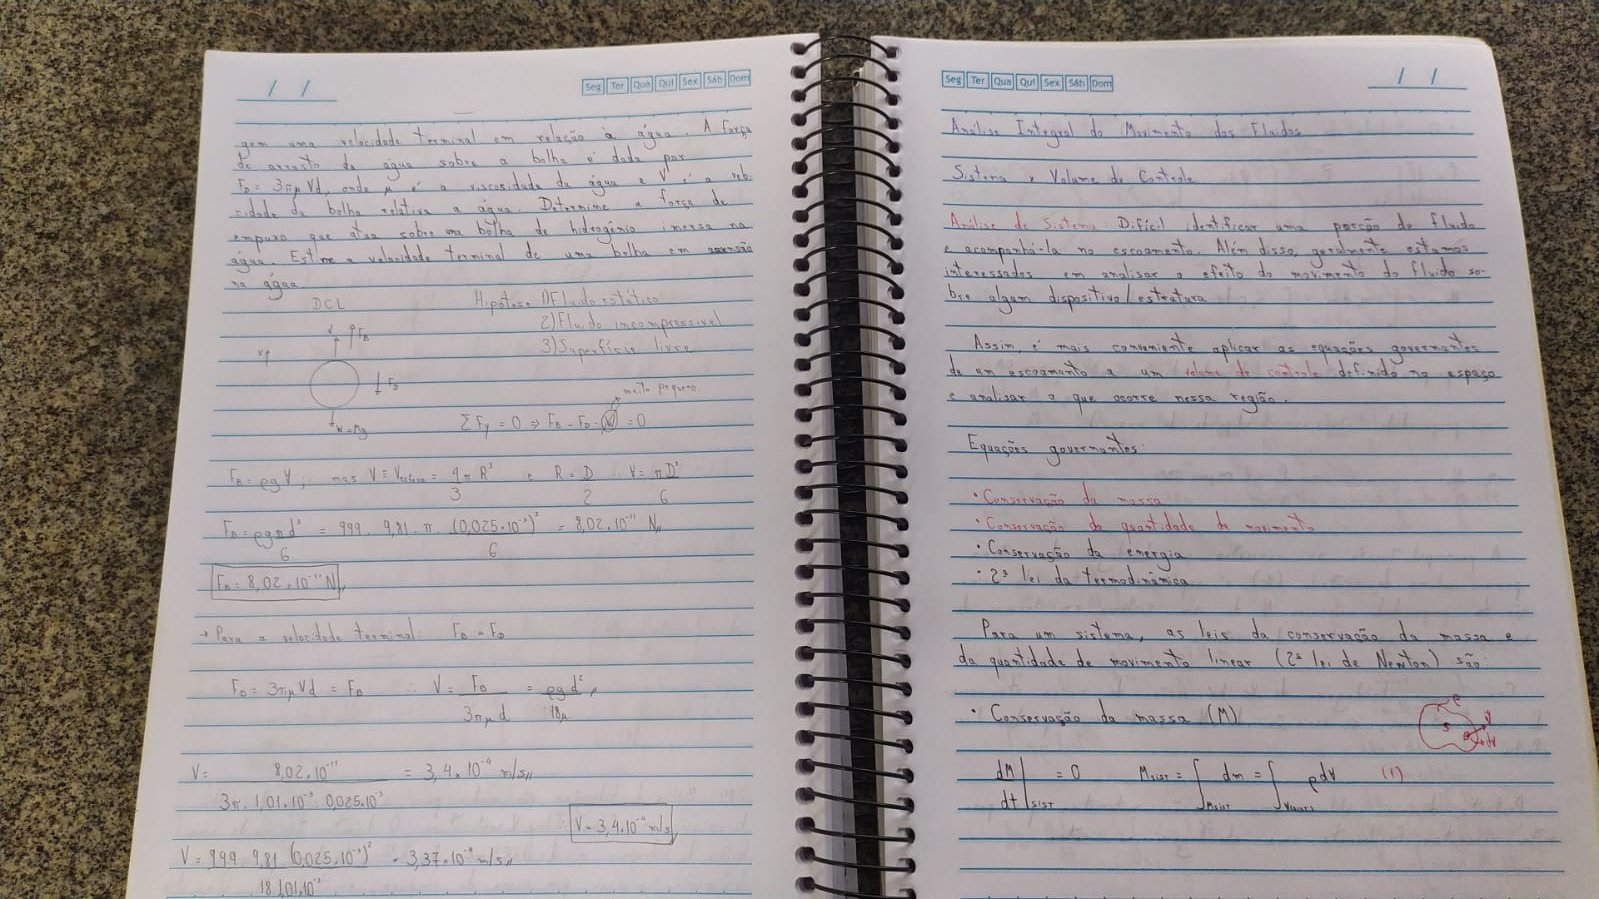 / /
Seg Ter Qua Qui Sex Sáb Dom
gem uma velocidade terminal em relação à água. A força
de arrasto da água sobre a bolha é dada por
FD = 3πμVd, onde μ é a viscosidade da água e V é a velo-
cidade da bolha relativa a água. Determine a força de
empuxo que atua sobre uma bolha de hidrogênio imersa na
água. Estime a velocidade terminal de uma bolha em ascensão
na água.
DCL Hipótese 1) Fluido estático
2) Fluido incompressível
3) Superfície livre
V FB
FD
W = Mg
muito pequeno
ΣFy = 0 ⇒ FB - FD - W = 0
FB = ρgV; mas V = Vesfera = 4πR³/3 e R = D/2 ∴ V = πD³/6
FB = ρgπd³/6 = 999 . 9,81 . π . (0,025.10⁻³)³/6 = 8,02.10⁻¹¹ N
FB = 8,02.10⁻¹¹ N
→ Para a velocidade terminal: FB = FD
FD = 3πμVd = FD ∴ V = FD/3πμd = ρgd²/18μ
V = 8,02.10⁻¹¹/3π . 1,01.10⁻³ . 0,025.10⁻³ = 3,4.10⁻⁴ m/s
V = 3,4.10⁻⁴ m/s
V = 999 . 9,81 (0,025.10⁻³)²/18.1,01.10⁻³ = 3,37.10⁻⁴ m/s
Seg Ter Qua Qui Sex Sáb Dom
/ /
Análise Integral do Movimento dos Fluidos
Sistema x Volume de Controle
Análise de Sistema: Difícil identificar uma porção de fluido
e acompanhá-la no escoamento. Além disso, geralmente estamos
interessados em analisar o efeito do movimento do fluido so-
bre algum dispositivo/estrutura
Assim é mais conveniente aplicar as equações governantes
de um escoamento a um volume de controle definido no espaço
e analisar o que ocorre nessa região.
Equações governantes:
• Conservação da massa
• Conservação da quantidade de movimento
• Conservação da energia
• 2ª lei da termodinâmica
Para um sistema, as leis da conservação da massa e
da quantidade de movimento linear (2ª lei de Newton) são:
• Conservação da massa (M)
ρ
S
V
dV
dM/dt|SIST = 0 MSIST = ∫MSIST dm = ∫VSIST ρdV (1)